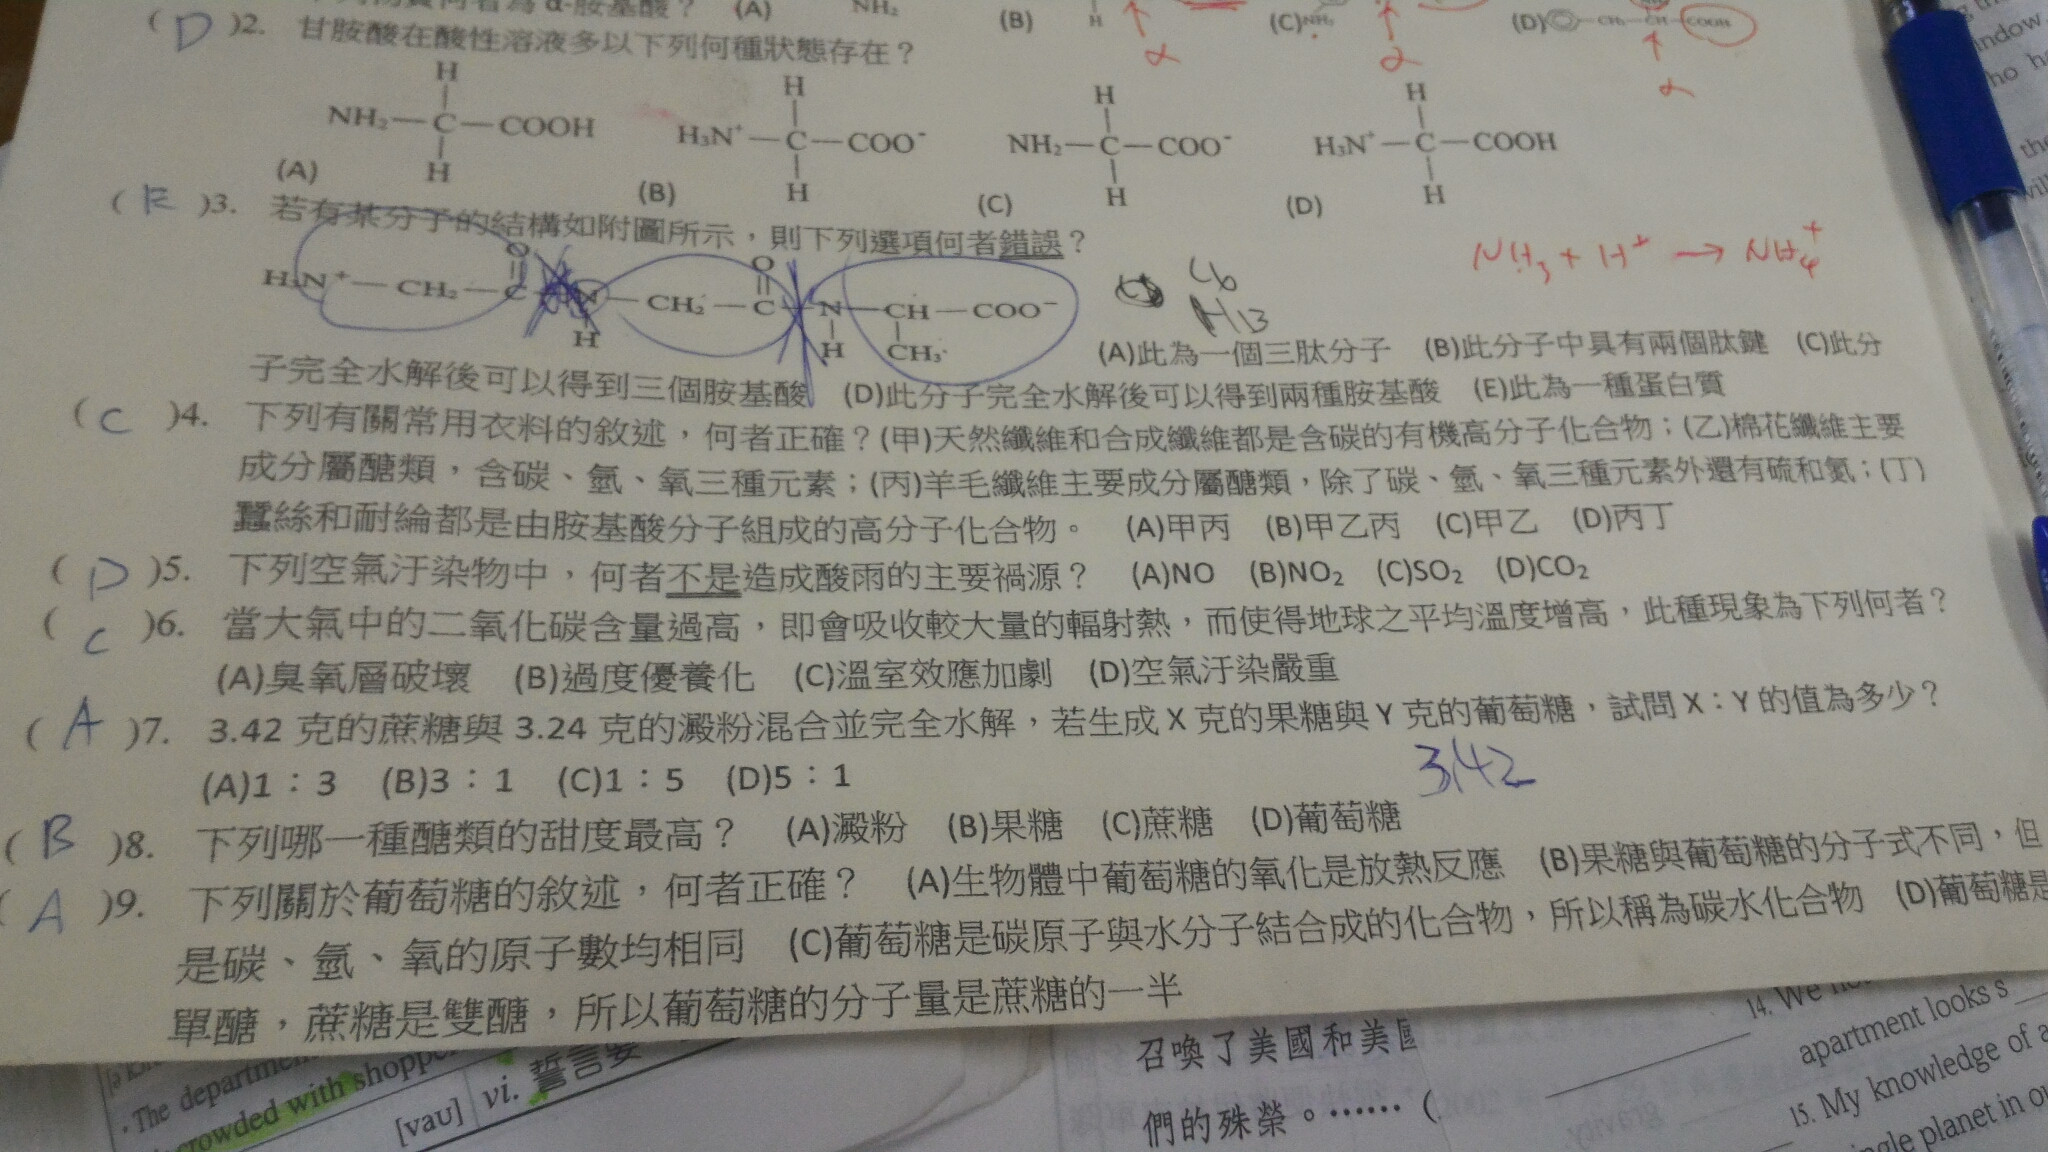 α-胺基酸？ (A) NH₂ (B) H (C) NH₂ (D) CH₂ — CH — COOH
α α α
( D )2. 甘胺酸在酸性溶液多以下列何種狀態存在？
H H H H
NH₂—C—COOH H₃N⁺—C—COO⁻ NH₂—C—COO⁻ H₃N⁺—C—COOH
(A) H (B) H (C) H (D) H
( E )3. 若有某分子的結構如附圖所示，則下列選項何者錯誤？
NH₃ + H⁺ → NH₄⁺
O O
H₃N⁺—CH₂—C—N—CH₂—C—N—CH—COO⁻
H H CH₃
C6
H13
(A)此為一個三肽分子 (B)此分子中具有兩個肽鍵 (C)此分
子完全水解後可以得到三個胺基酸 (D)此分子完全水解後可以得到兩種胺基酸 (E)此為一種蛋白質
( C )4. 下列有關常用衣料的敘述，何者正確？(甲)天然纖維和合成纖維都是含碳的有機高分子化合物；(乙)棉花纖維主要
成分屬醣類，含碳、氫、氧三種元素；(丙)羊毛纖維主要成分屬醣類，除了碳、氫、氧三種元素外還有硫和氮；(丁)
蠶絲和耐綸都是由胺基酸分子組成的高分子化合物。 (A)甲丙 (B)甲乙丙 (C)甲乙 (D)丙丁
( D )5. 下列空氣汙染物中，何者不是造成酸雨的主要禍源？ (A)NO (B)NO₂ (C)SO₂ (D)CO₂
( C )6. 當大氣中的二氧化碳含量過高，即會吸收較大量的輻射熱，而使得地球之平均溫度增高，此種現象為下列何者？
(A)臭氧層破壞 (B)過度優養化 (C)溫室效應加劇 (D)空氣汙染嚴重
( A )7. 3.42 克的蔗糖與 3.24 克的澱粉混合並完全水解，若生成 X 克的果糖與 Y 克的葡萄糖，試問 X：Y 的值為多少？
(A)1：3 (B)3：1 (C)1：5 (D)5：1
3.42
( B )8. 下列哪一種醣類的甜度最高？ (A)澱粉 (B)果糖 (C)蔗糖 (D)葡萄糖
( A )9. 下列關於葡萄糖的敘述，何者正確？ (A)生物體中葡萄糖的氧化是放熱反應 (B)果糖與葡萄糖的分子式不同，但
是碳、氫、氧的原子數均相同 (C)葡萄糖是碳原子與水分子結合成的化合物，所以稱為碳水化合物 (D)葡萄糖是
單醣，蔗糖是雙醣，所以葡萄糖的分子量是蔗糖的一半
The department
crowded with shoppe
[vaʊ] vi. 誓言要
召喚了美國和美
們的殊榮。⋯⋯ (
14. We
apartment looks s
15. My knowledge of a
planet in
window.
the